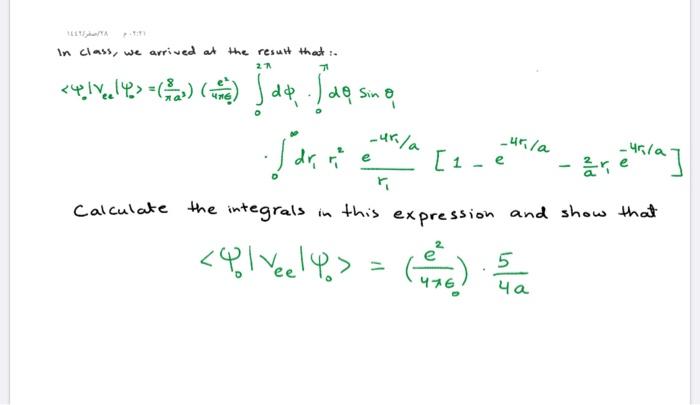 In class, we arrived at the result that :-
<Ψ₀|Vee|Ψ₀> = (8/πa³) (e²/4πϵ₀) ∫₀^2π dϕ₁ · ∫₀^π dθ₁ sin θ₁
· ∫₀^∞ dr₁ r₁² e^(-4r₁/a)/r₁ [1 - e^(-4r₁/a) - (2/a) r₁ e^(-4r₁/a)]
Calculate the integrals in this expression and show that
<Ψ₀|Vee|Ψ₀> = (e²/4πϵ₀) · 5/4a